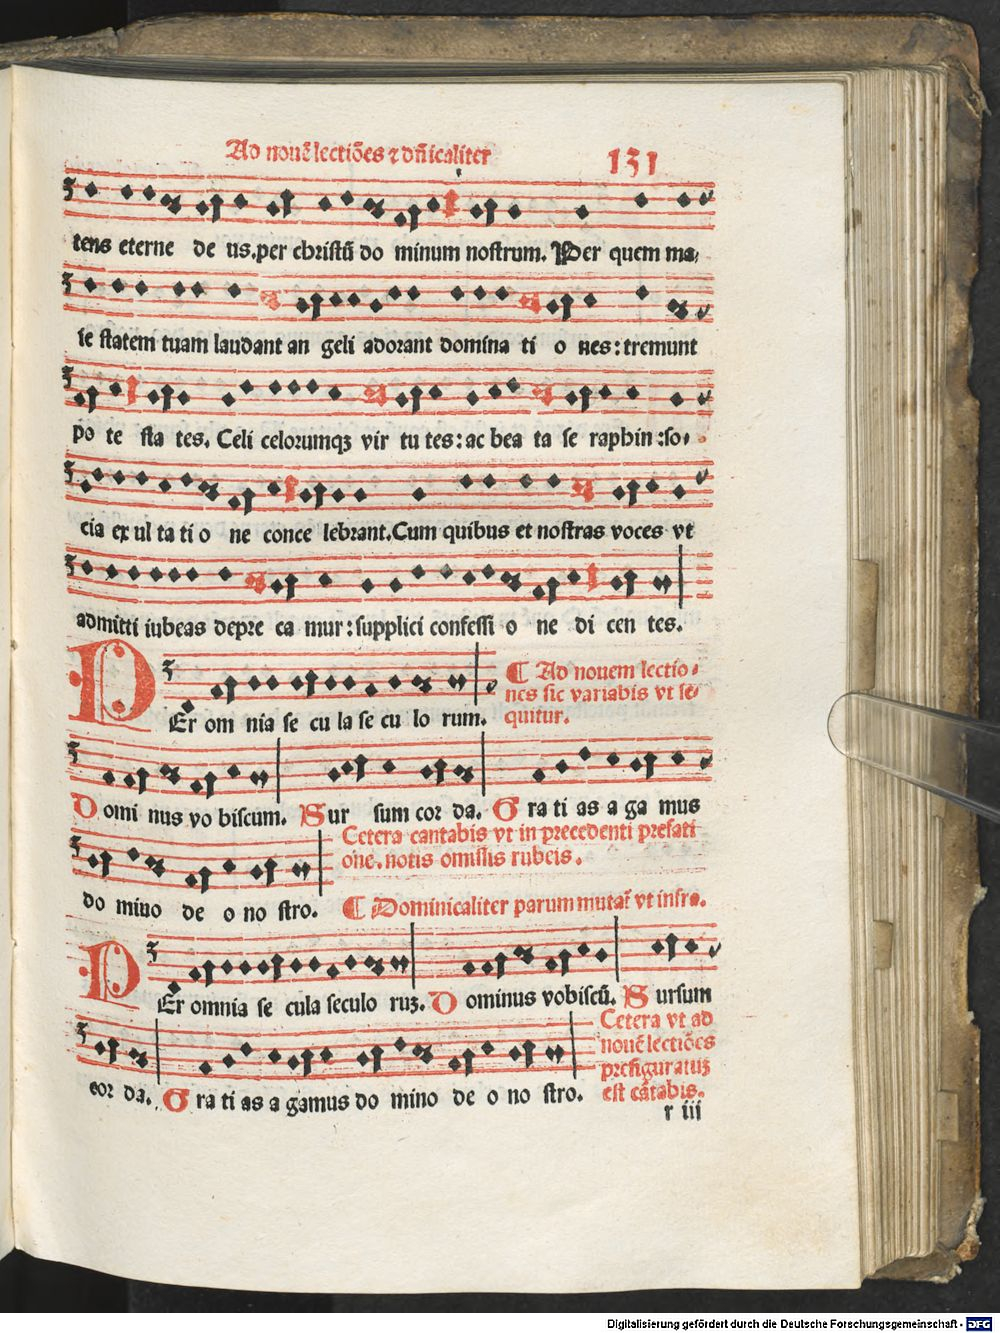 Ad nouẽ lectiões ⁊ dñicaliter 131
tens eterne de us.per christũ do minum nostrum. Per quem ma⸗
ie statem tuam laudant an geli adorant domina ti o nes:tremunt
po te sta tes. Celi celorumqꝫ vir tu tes:ac bea ta se raphin:so⸗
cia ex ul ta ti o ne conce lebrant.Cum quibus et nostras voces vt
admitti iubeas depre ca mur:supplici confessi o ne di cen tes.
PEr om nia se cu la se cu lo rum.
¶ Ad nouem lectio⸗
nes sic variabis vt se⸗
quitur.
Domi nus vo biscum. Sur sum cor da. Gra ti as a ga mus
Cetera cantabis vt in precedenti prefati
one.notis omissis rubeis.
do mino de o no stro.
¶ Dominicaliter parum mutat᷑ vt infra.
PEr omnia se cula seculo ruꝫ. Dominus vobiscũ. Sursum
Cetera vt ad
nouẽ lectiões
prefiguratuꝫ
est cãtabis.
cor da. Gra ti as a gamus do mino de o no stro.
r iii
Digitalisierung gefördert durch die Deutsche Forschungsgemeinschaft - DFG